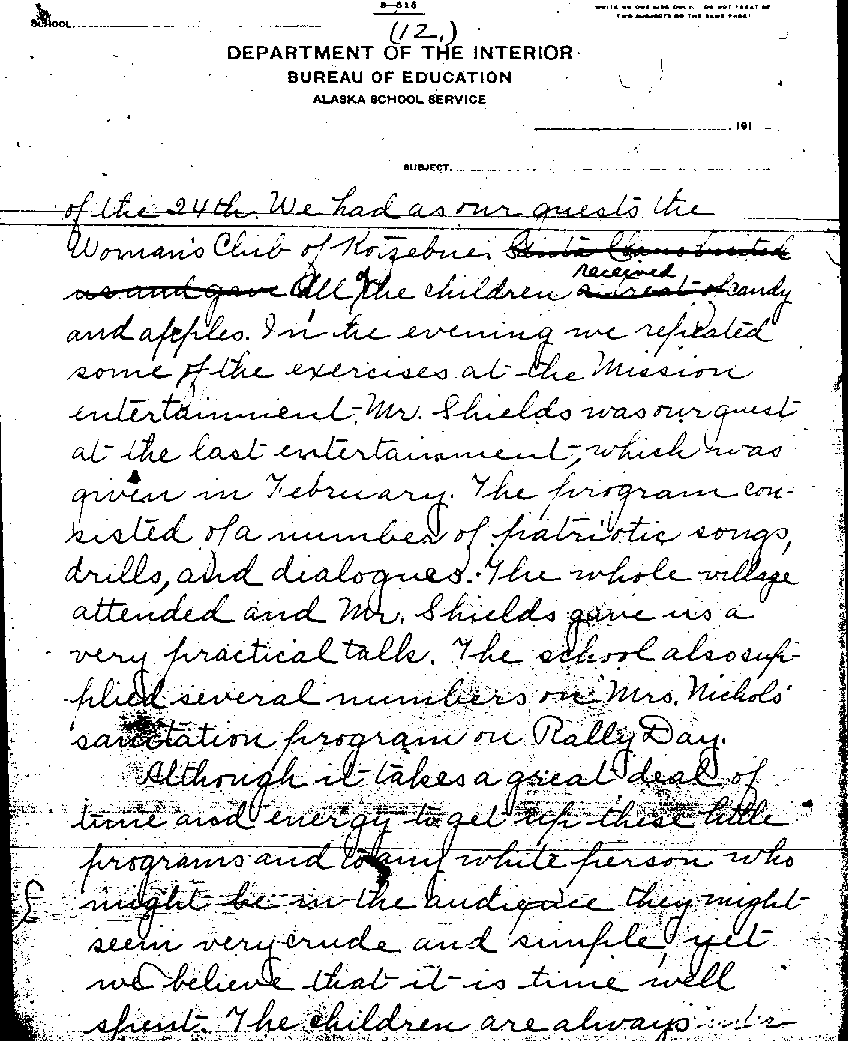 SCHOOL
8-616
WRITE ON ONE SIDE ONLY. DO NOT TREAT OF
TWO SUBJECTS ON THE SAME PAGE!
(12.)
DEPARTMENT OF THE INTERIOR
BUREAU OF EDUCATION
ALASKA SCHOOL SERVICE
191
SUBJECT
of the 24th. We had as our guests the
Woman's Club of Kotzebue. Santa Claus visited
received
us and gave All of the children a treat of candy
and apples. In the evening we repeated
some of the exercises at the Mission
entertainment. Mr. Shields was our guest
at the last entertainment, which was
given in February. The program con-
sisted of a number of patriotic songs,
drills, and dialogues. The whole village
attended and Mr. Shields gave us a
very practical talk. The school also sup-
plied several numbers on Mrs. Nichols'
sanitation program on Rally Day.
Although it takes a great deal of
time and energy to get up these little
programs and to any white person who
might be in the audience they might
seem very crude and simple, yet
we believe that it is time well
spent. The children are always